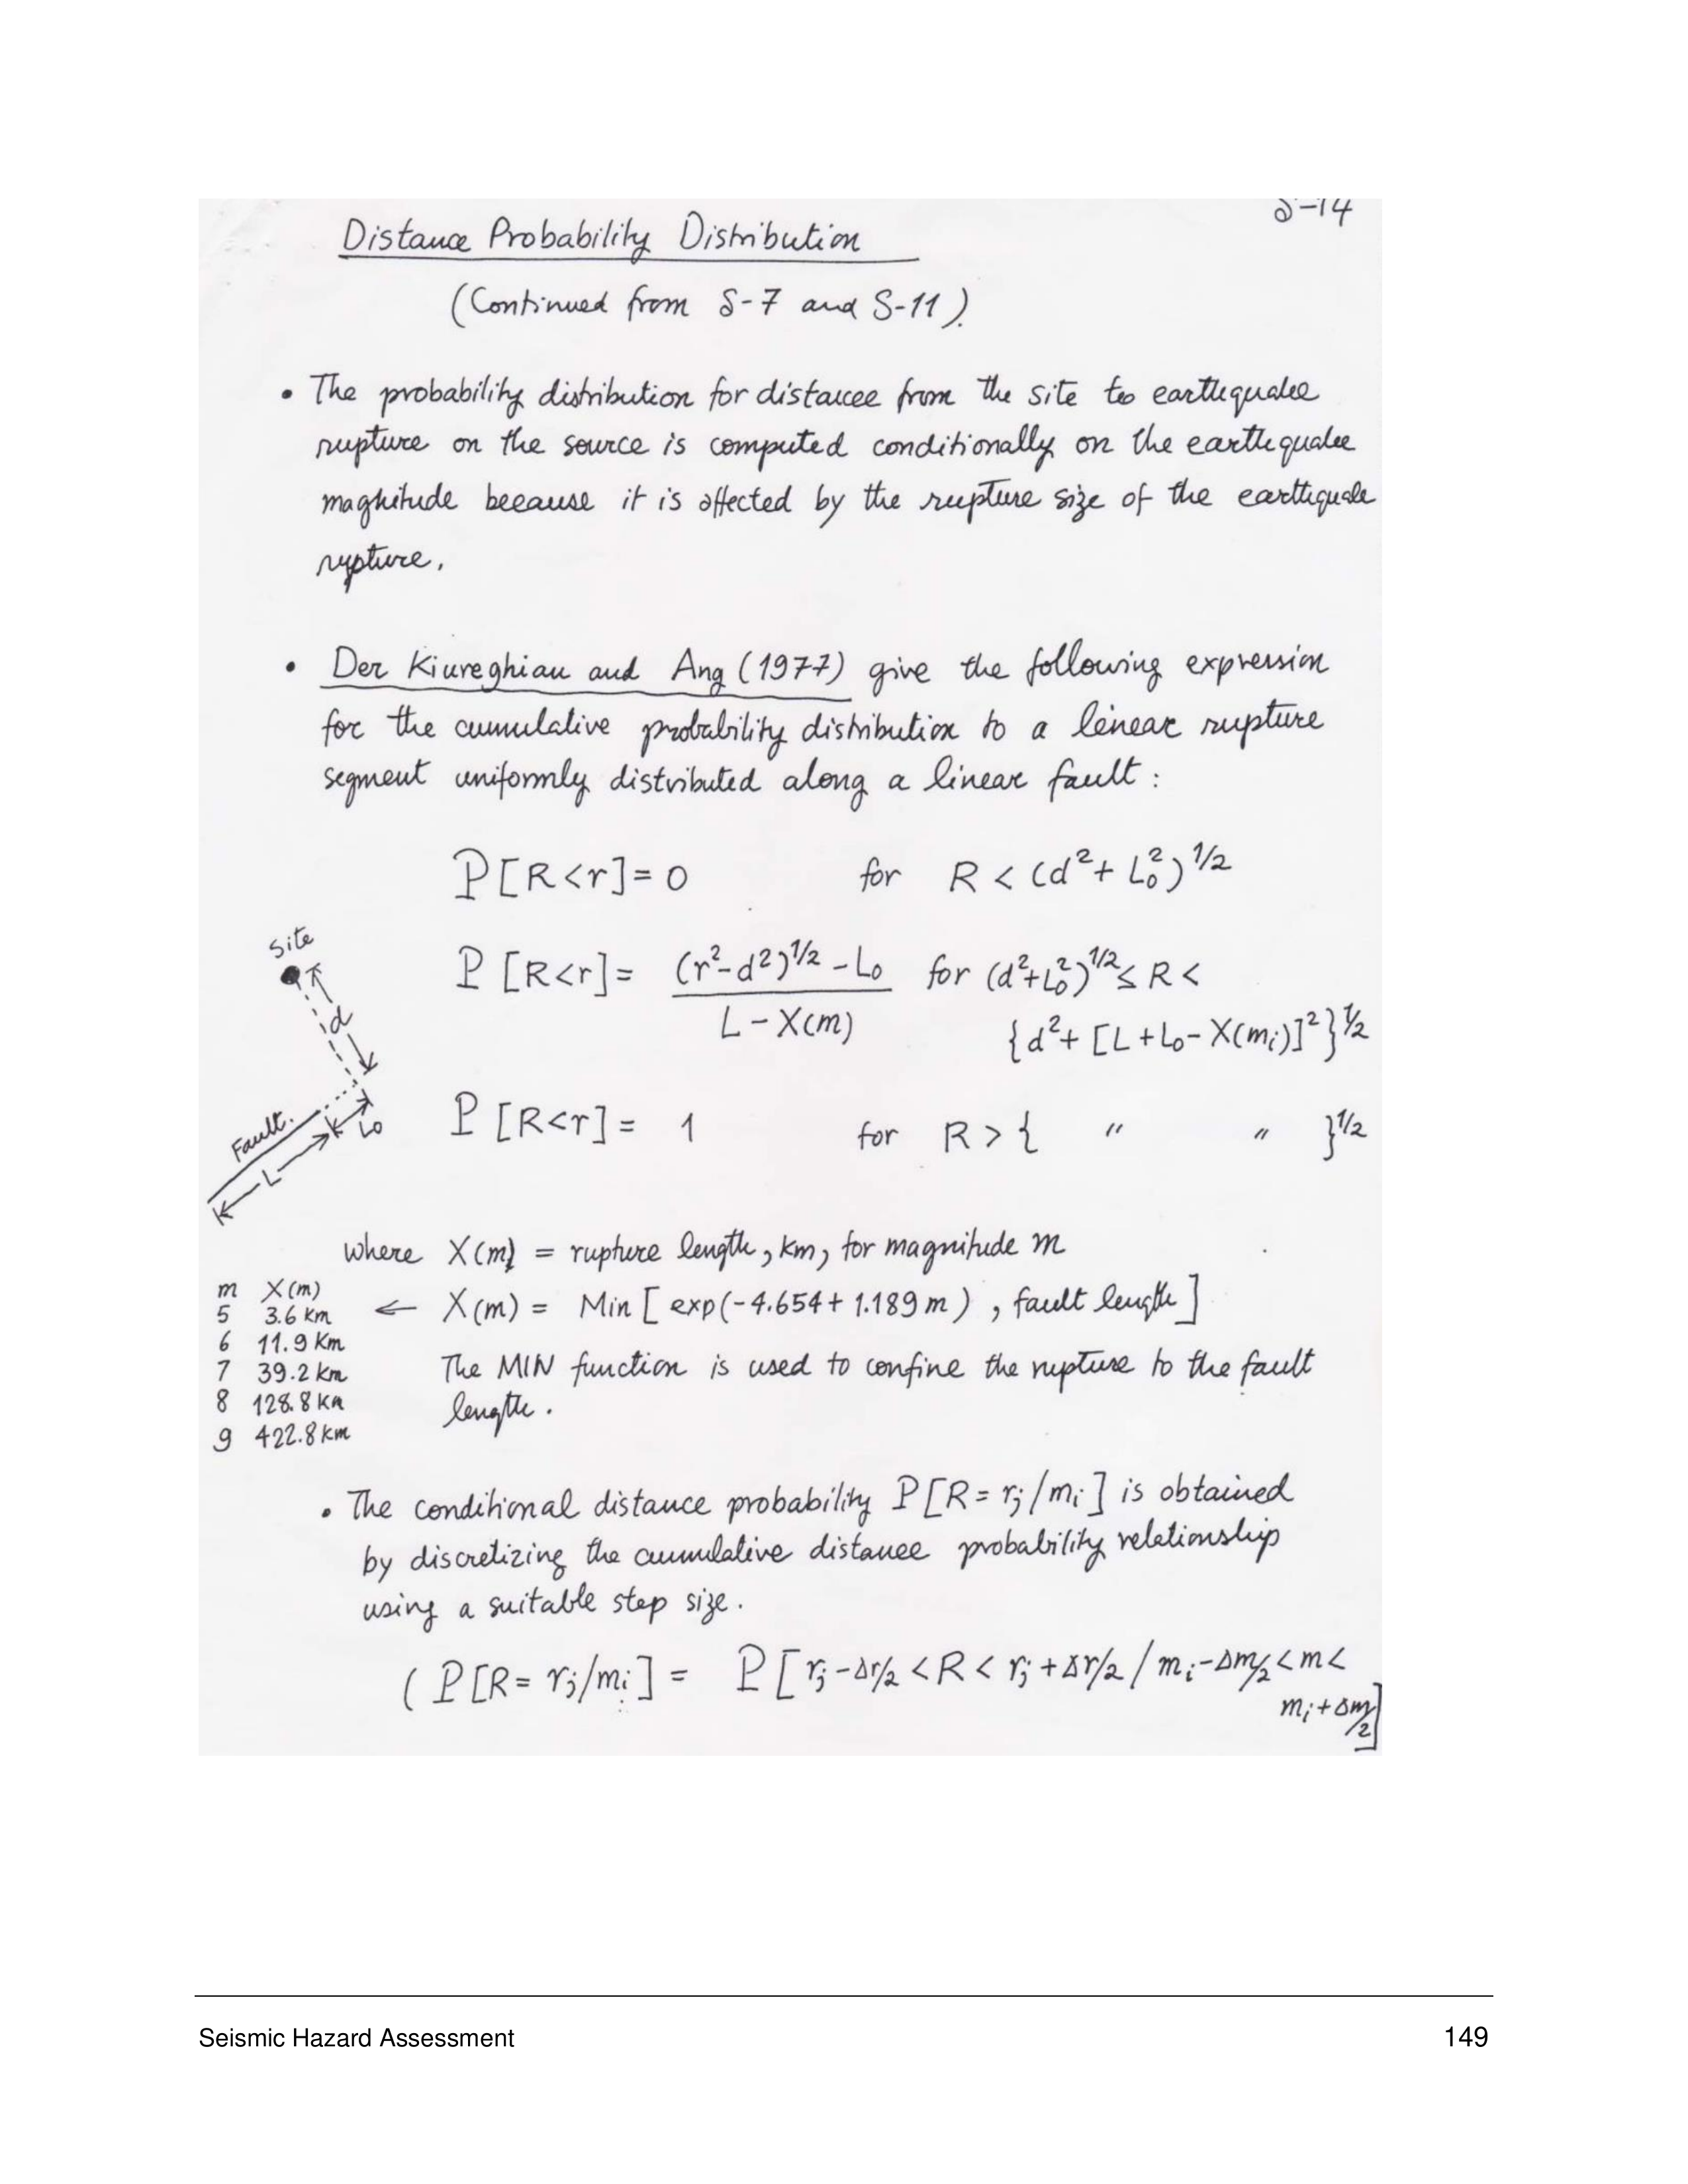 S-14
Distance Probability Distribution
(Continued from S-7 and S-11).
• The probability distribution for distance from the site to earthquake
rupture on the source is computed conditionally on the earthquake
magnitude because it is affected by the rupture size of the earthquake
rupture.
• Der Kiureghian and Ang (1977) give the following expression
for the cumulative probability distribution to a linear rupture
segment uniformly distributed along a linear fault :
P[R<r] = 0 for R < (d²+ L₀²)^1/2
Site
d
P[R<r] = ((r²-d²)^1/2 - L₀) / (L - X(m)) for (d²+L₀²)^1/2 ≤ R <
{d²+ [L+L₀- X(mᵢ)]²}^1/2
Fault.
L
L₀
P[R<r] = 1 for R > { " " }^1/2
where X(m) = rupture length, km, for magnitude m
m X(m)
5 3.6 km ← X(m) = Min [ exp(-4.654+ 1.189 m ) , fault length ]
6 11.9 km
7 39.2 km The MIN function is used to confine the rupture to the fault
8 128.8 km length .
9 422.8 km
• The conditional distance probability P[R= rⱼ/mᵢ] is obtained
by discretizing the cumulative distance probability relationship
using a suitable step size .
( P[R= rⱼ/mᵢ] = P[ rⱼ -Δr/2 < R < rⱼ +Δr/2 / mᵢ -Δm/2 < m <
mᵢ + Δm/2 ]
Seismic Hazard Assessment 149